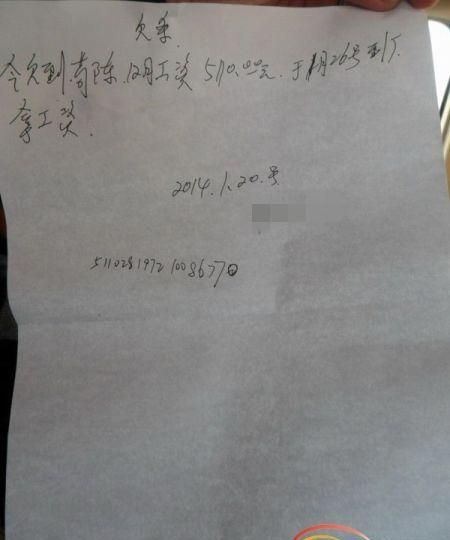 欠条
今欠到陈 12月工资 5110.00元.于1月26号到厂
拿工资.
2014.1.20.号